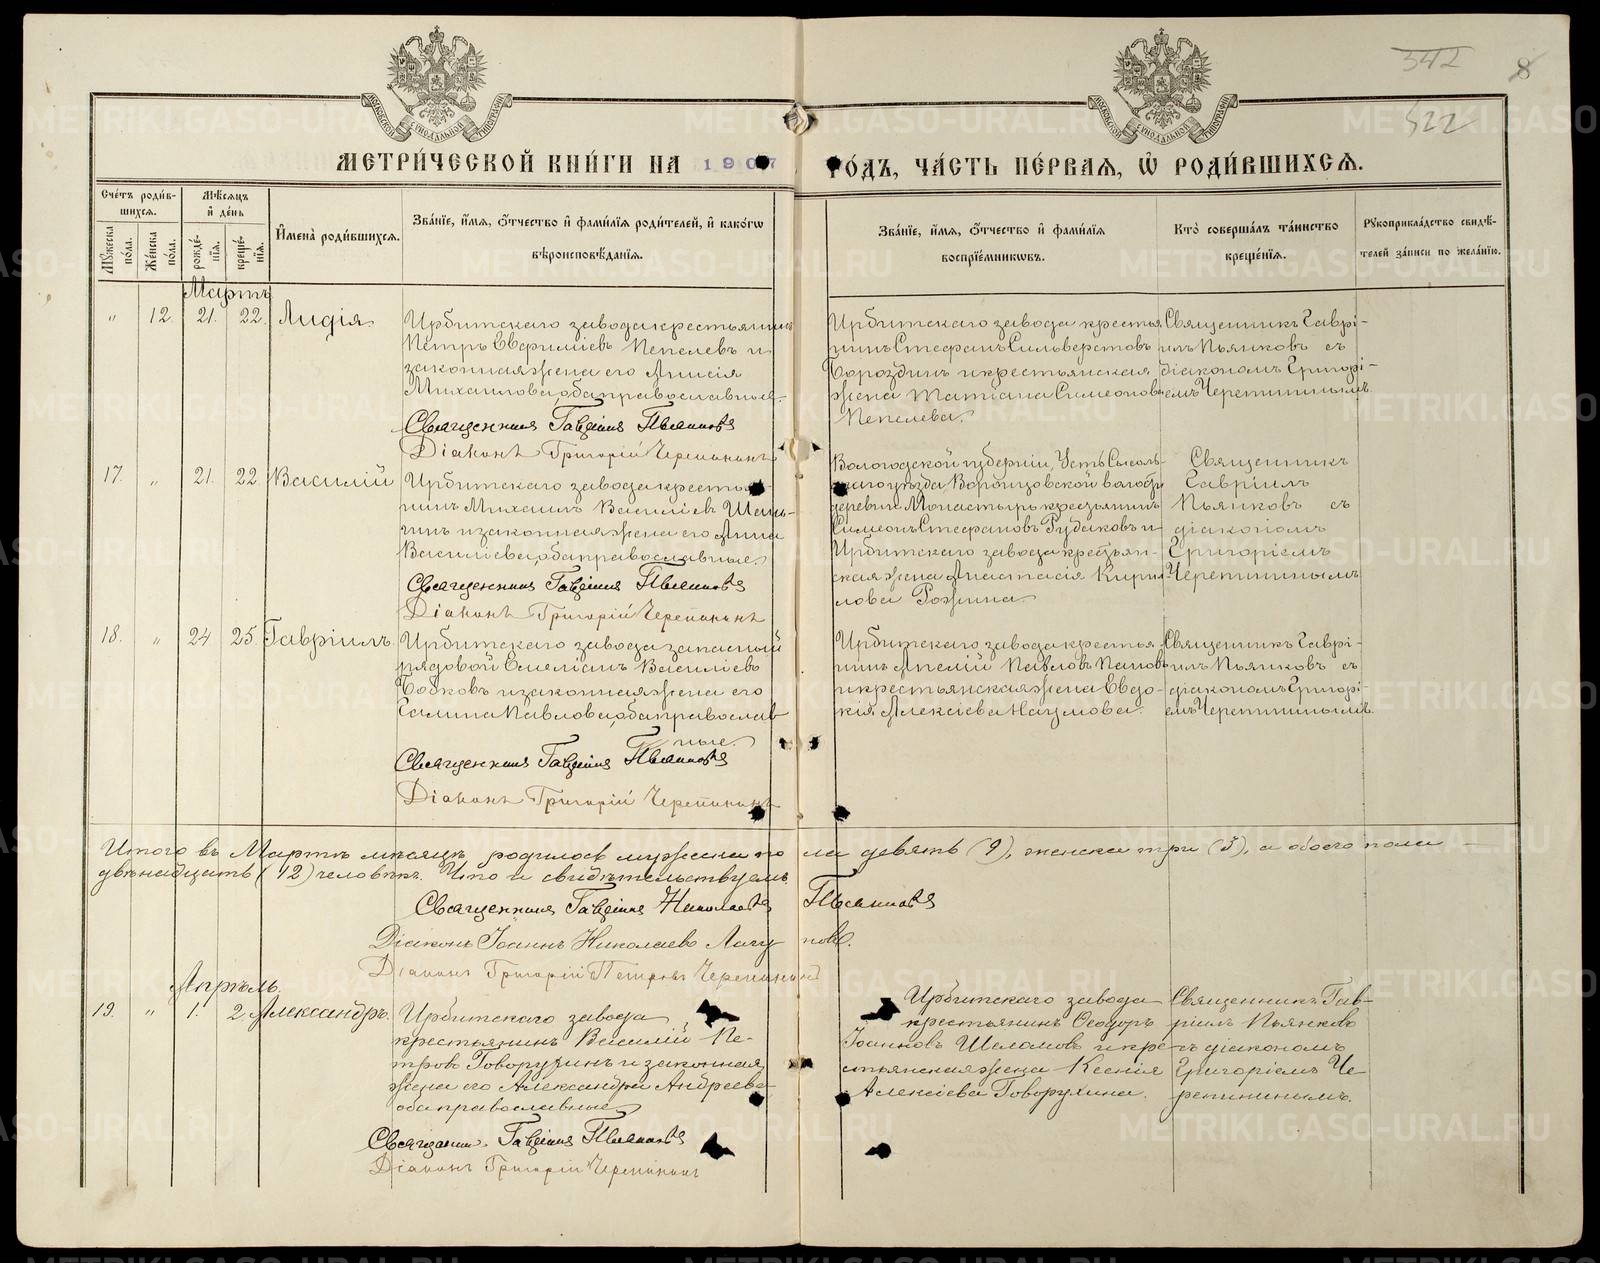 342
8
322
МОСКОВСКОЙ СѴНОДАЛЬНОЙ ТИПОГРАФІИ
МОСКОВСКОЙ СѴНОДАЛЬНОЙ ТИПОГРАФІИ
МЕТРИ́ЧЕСКОЙ КНИ́ГИ НА 1907 ГОДЪ, ЧА́СТЬ ПЕ́РВАѦ, Ѽ РОДИ́ВШИХСѦ.
Сче́тъ роди́в-
шихся.
Мѣ́сяцъ
и҆ де́нь
Мꙋ́жеска по́ла.
Же́нска по́ла.
рожде́-нїя.
креще́-нїя.
И҆мена̀ роди́вшихся.
Зва́нїе, и҆́мя, ѻ҆́тчество и҆ фами́лїя роди́телей, и҆ како́гѡ
вѣроисповѣ́данїя.
Зва́нїе, и҆́мя, ѻ҆́тчество и҆ фами́лїя
воспрїе́мникѡвъ.
Кто̀ соверша́лъ та́инство
креще́нїя.
Рꙋкоприкла́дство свидѣ́-
телей за́писи по жела́нїю.
Мартъ
" 12. 21. 22. Лидія
Ирбитскаго завода крестьянинъ
Петръ Евфиміевъ Пепелевъ и
законная жена его Анисія
Михаилова, оба православные.
Священникъ Гавріилъ Пьянковъ
Діаконъ Григорій Черепанинъ
Ирбитскаго завода крестья-
нинъ Стефанъ Сильверстовъ
Бороздинъ и крестьянская
жена Татіана Симеонова
Пепелева.
Священникъ Гаврі-
илъ Пьянковъ съ
діакономъ Григорі-
емъ Черепанинымъ.
17. " 21. 22. Василій
Ирбитскаго завода крестья-
нинъ Михаилъ Василіевъ
и законная жена его Анна
Василіева, оба православные.
Священникъ Гавріилъ Пьянковъ
Діаконъ Григорій Черепанинъ
Вологодской губерніи, Усть Сысоль-
скаго уѣзда, Воронцовской волости
деревни Монастырь крестьянинъ
Симеонъ Стефановъ Рудаковъ и
Ирбитскаго завода крестьян-
ская жена Анастасія Кирил-
лова Рожина.
Священникъ
Гавріилъ
Пьянковъ съ
діакономъ
Григоріемъ
Черепанинымъ
18. " 24 25 Гавріилъ.
Ирбитскаго завода запасный
рядовой Емеліанъ Василіевъ
Бобковъ и законная жена его
Галина Павлова, оба православ
ные.
Священникъ Гавріилъ Пьянковъ
Діаконъ Григорій Черепанинъ
Ирбитскаго завода крестья
нинъ Павловъ Поповъ
и крестьянская жена Евдо-
кія Алексіева Наумова.
Священникъ Гаврі-
илъ Пьянковъ съ
діакономъ Григорі-
емъ Черепанинымъ.
Итого въ Мартѣ мѣсяцѣ родилось мужеска по ла девять (9), женска три (3), а обоего пола
двѣнадцать (12) человѣкъ. Что и свидѣтельствуемъ.
Священникъ Гавріилъ Николаевъ Пьянковъ
Діаконъ Іоаннъ Николаевъ Лагу новъ.
Діаконъ Григорій Петровъ Черепанинъ
Апрѣль.
19. " 1. 2. Александръ.
Ирбитскаго завода
крестьянинъ Василій Пе-
тровъ Говорухинъ и законная
жена его Александра Андреева
оба православные.
Священ. Гавріилъ Пьянковъ
Діаконъ Григорій Черепанинъ
Ирбитскаго завода
крестьянинъ Ѳеодоръ
Іоанновъ Шеломовъ и кре-
стьянская жена Ксенія
Алексіева Говорухина.
Священникъ Гав-
ріилъ Пьянковъ
съ діакономъ
Григоріемъ Че
репанинымъ.
METRIKI.GASO-URAL.RU